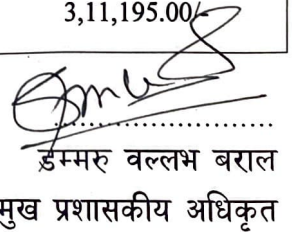 3,11,195.00/
डम्मरु वल्लभ बराल
मुख प्रशासकीय अधिकृत